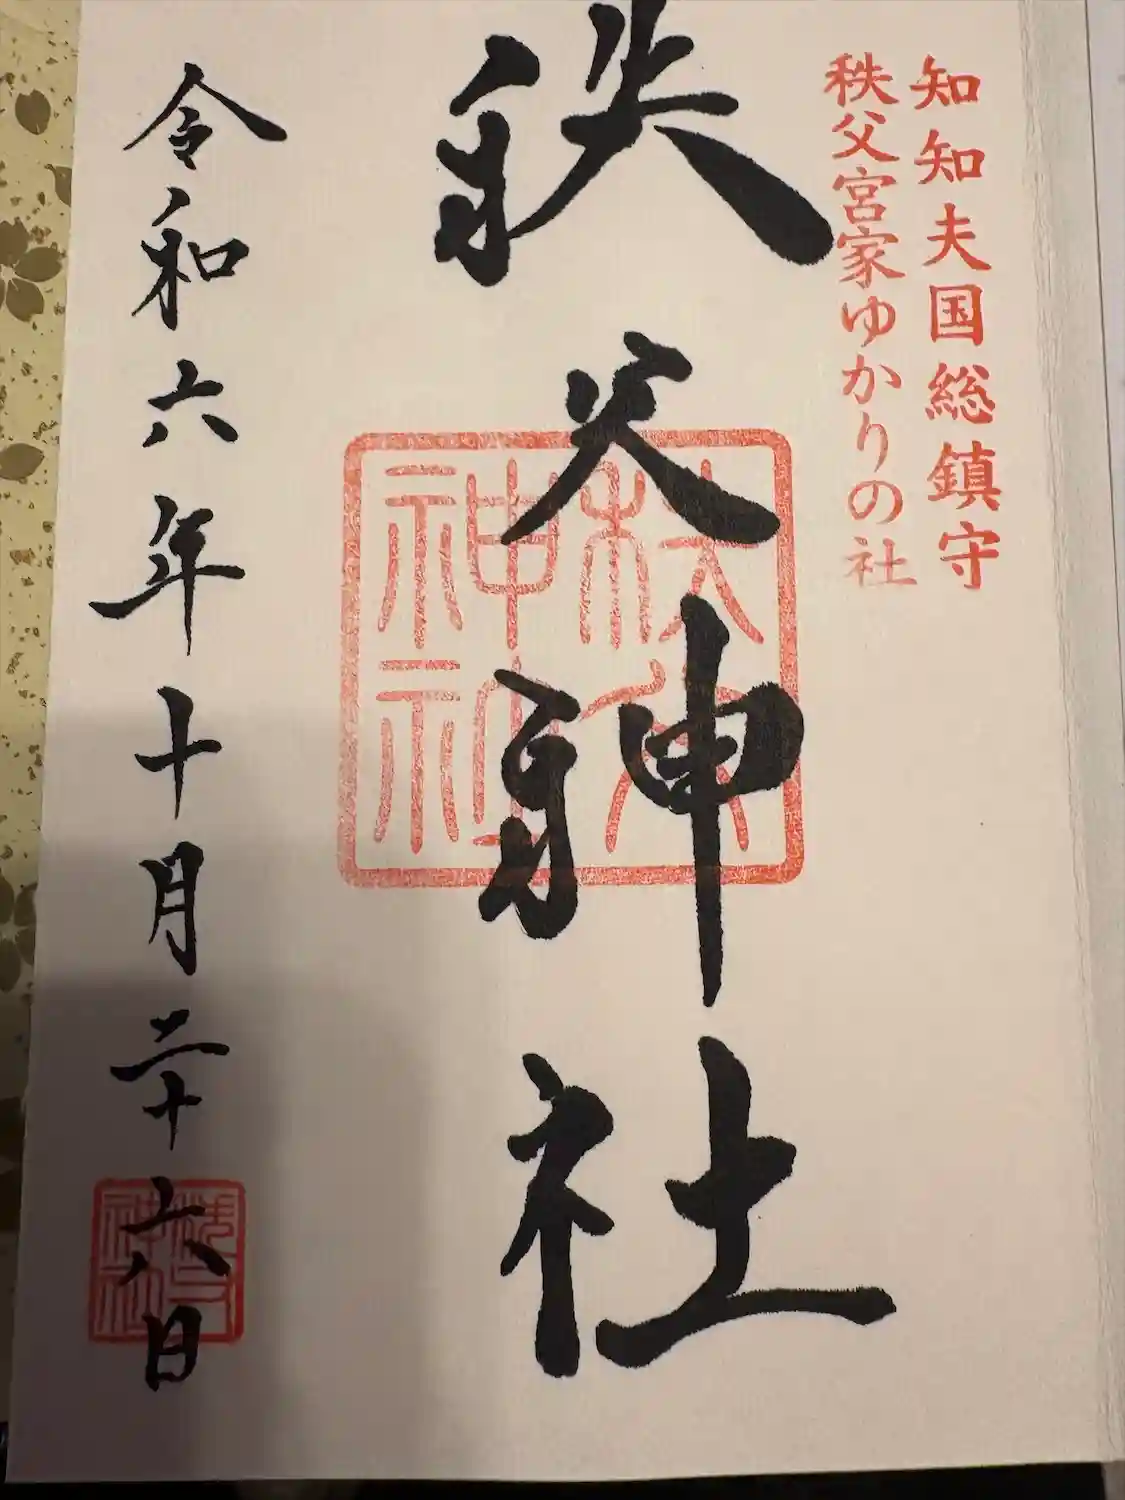 知知夫国総鎮守
秩父宮家ゆかりの社
秩父神社
秩父神社
令和六年十月二十六日
秩父神社